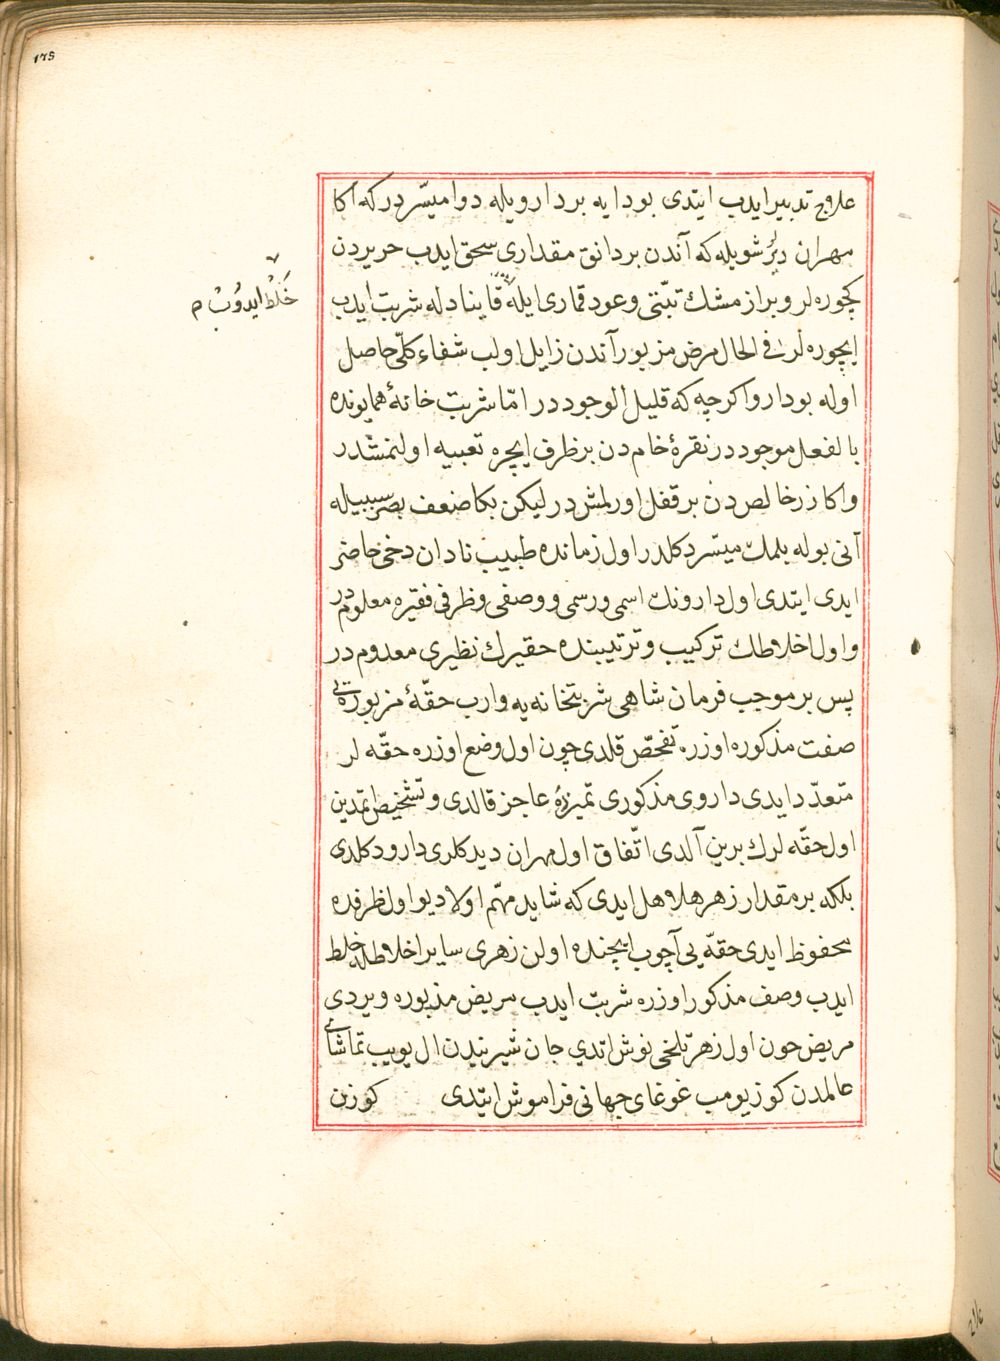 ١٢٥
علاج تدبير ايدب ايتدى بودايه بر دارويله دوا ميسّر در كه آكا
مهران دير شويله كه آندن بر دانق مقدارى سحق ايدب حريردن
كچوره لر و براز مشك تبّتى و عود قمارى ايله قاينادله شربت ايدب
خَلْط ايدُوبْ م
ايچوره لر فى الحال مرض مزبور آندن زايل اولب شفاء كلّى حاصل
اوله بو دارو اكرچه كه قليل الوجود در امّا شربت خانهٔ همايونده
بالفعل موجود در نقرهٔ خام دن بر ظرف ايچره تعبيه اولنمشدر
و اكا زر خالص دن بر قفل اورلمش در ليكن بكا ضعف بصر سببيله
آنى بوله بلمك ميسّر دكلدر اول زمانده طبيب نادان دخى حاضر
ايدى ايتدى اول دارونك اسمى و رسمى و وصفى و ظرفى فقيره معلومدر
و اول اخلاطك تركيب و ترتيبنده حقيرك نظيرى معدوم در
پس بر موجب فرمان شاهى شربتخانه يه وارب حقّهٔ مزبوره يى
صفت مذكوره اوزره تفحّص قلدى چون اول وضع اوزره حقّه لر
متعدّد ايدى داروى مذكورى تميزده عاجز قالدى و تشخيص ايتمدين
اول حقّه لرك برين آلدى اتّفاق اول مهران ديدكلرى دارو دكلدى
بلكه بر مقدار زهر هلاهل ايدى كه شايد مهّم اولا ديو اول ظرفده
محفوظ ايدى حقّه يى آچوب ايچنده اولن زهرى ساير اخلاطله خلط
ايدب وصف مذكور اوزره شربت ايدب مريض مذبوره ويردى
مريض چون اول زهر تلخى نوش اتدي جان شيرينيدن ال يويب تماشاى
عالمدن كوز يومب غوغاى جهانى فراموش ايتدى كوزن